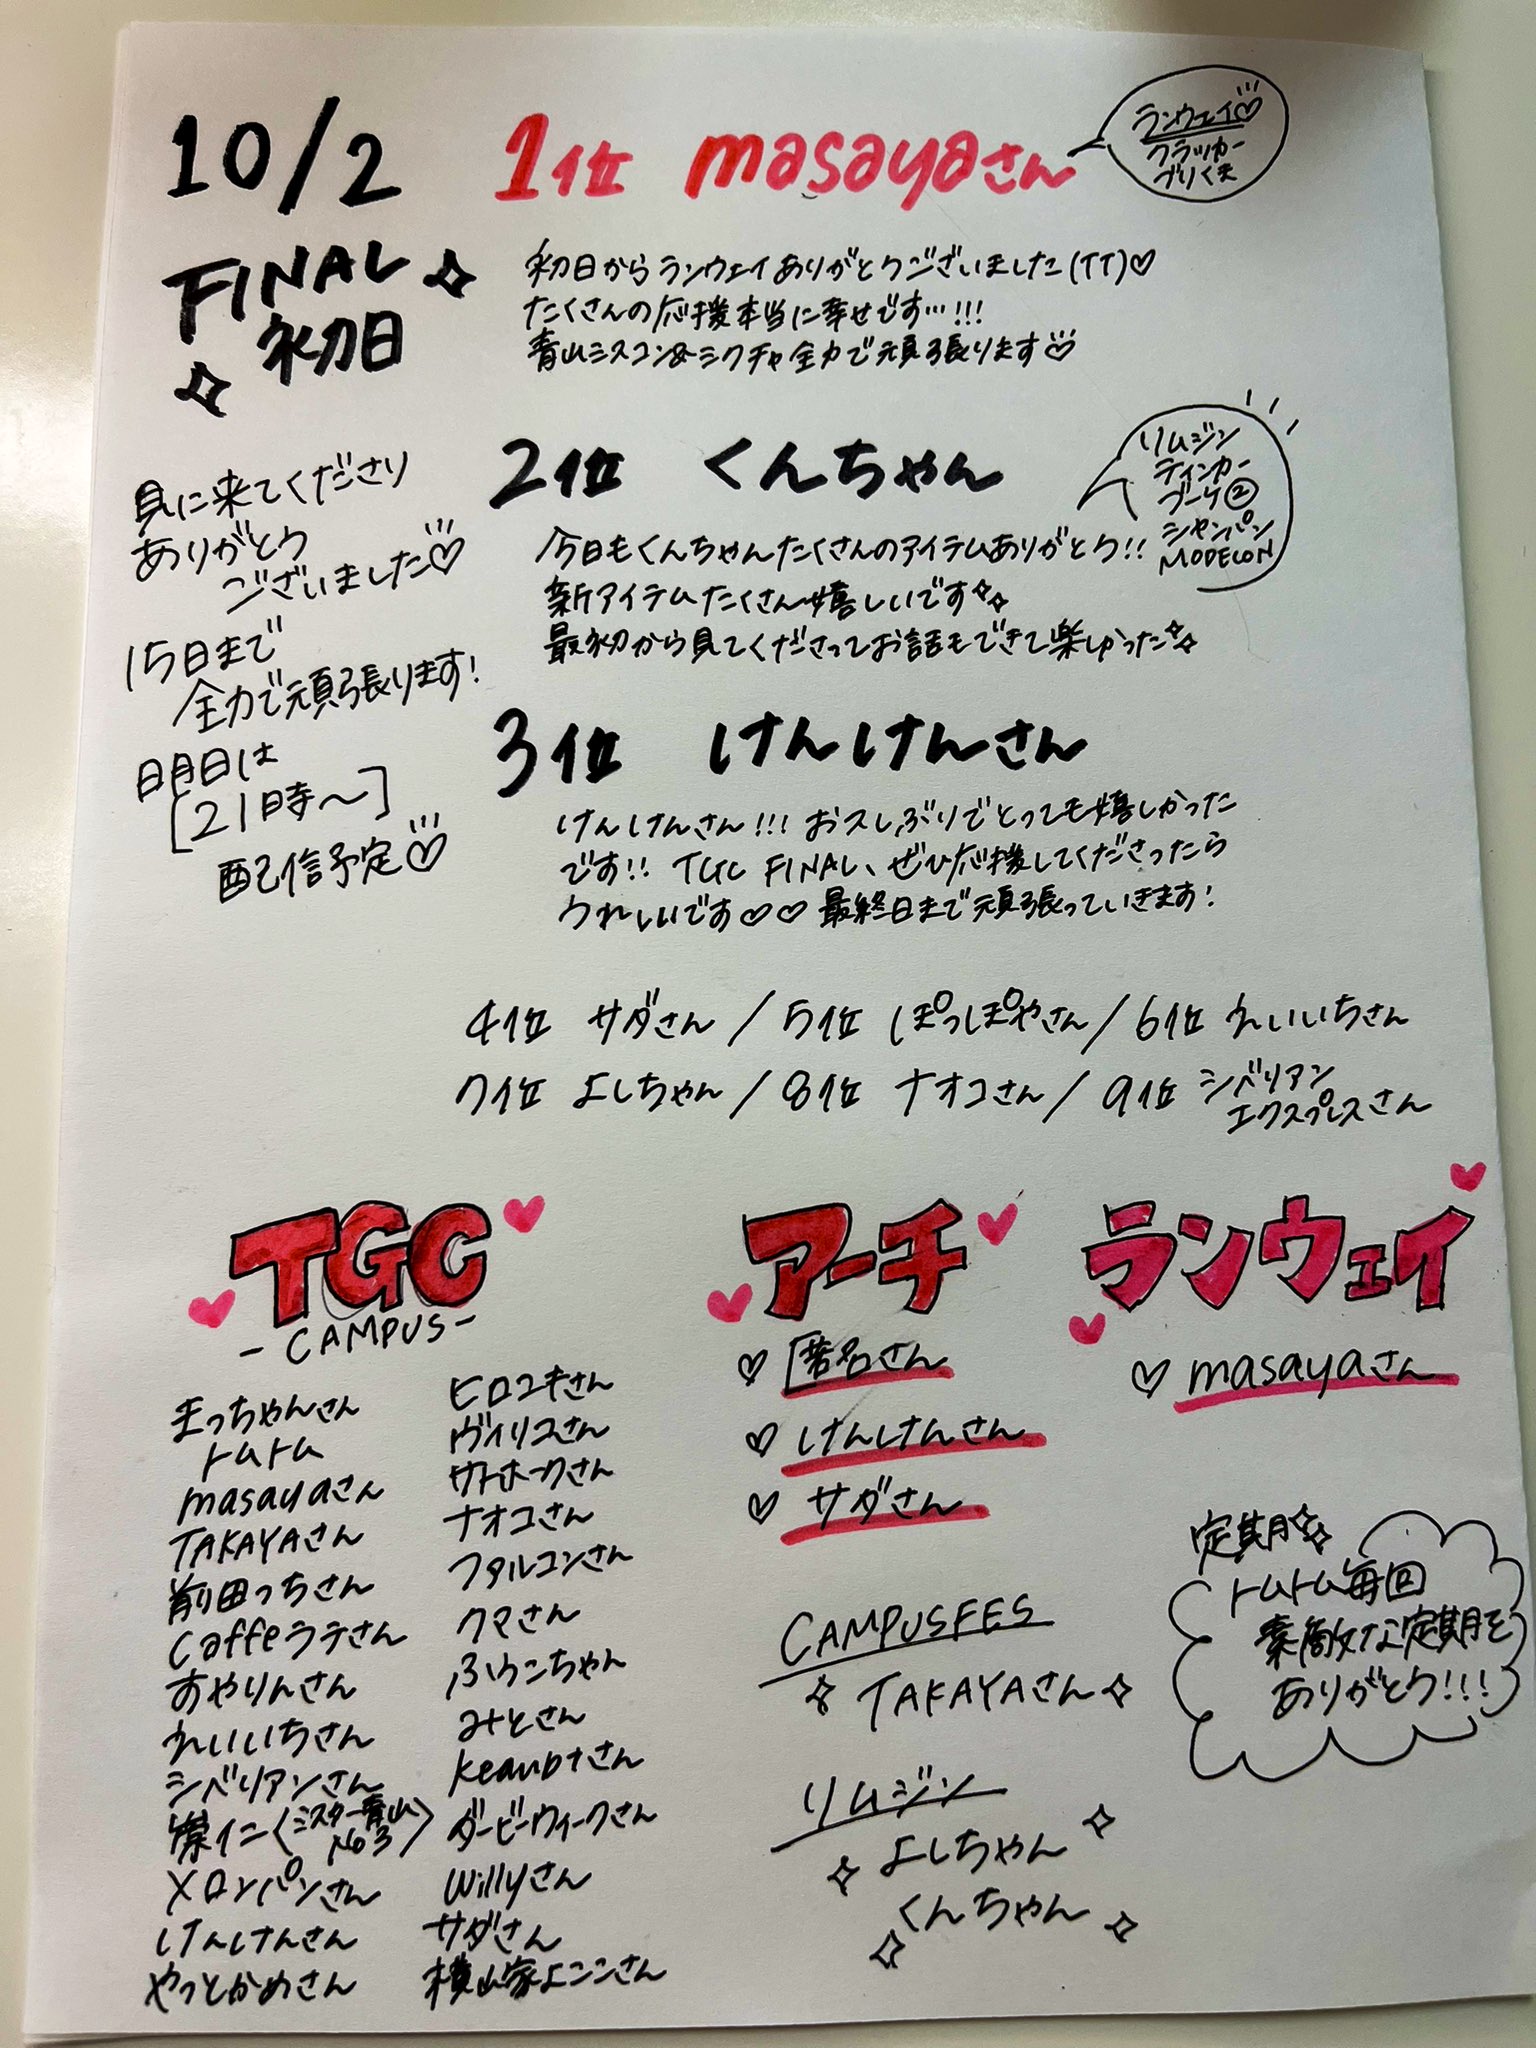 10/2
FINAL
初日
見に来てくださり
ありがとう
ございました♡
15日まで
全力で頑張ります!
明日は
[21時〜]
配信予定♡
1位 masayaさん
ランウェイ♡
クラッカー
づりくま
初日からランウェイありがとうございました(TT)♡
たくさんの応援本当に幸せです…!!!
青山ミスコン&ミクチャ全力で頑張ります♡
2位 くんちゃん
リムジン
ティンカー
ブーケ②
シャンパン
MODECON
今日もくんちゃんたくさんのアイテムありがとう!!
新アイテムたくさん嬉しいです
最初から見てくださってお話もできて楽しかった
3位 けんけんさん
けんけんさん!!! お久しぶりでとっても嬉しかった
です!! TGC FINAL、ぜひ応援してくださったら
うれしいです♡♡ 最終日まで頑張っていきます!
4位 サダさん / 5位 ぽっぽやさん / 6位 れいいちさん
7位 よしちゃん / 8位 ナオコさん / 9位 シベリアン
エクスプレスさん
TGC
-CAMPUS-
まっちゃんさん
トムトム
masayaさん
TAKAYAさん
前田っちさん
Caffeラテさん
すやりんさん
れいいちさん
シベリアンさん
崇仁〈ミスター青山
No3〉
メロンパンさん
けんけんさん
やっとかめさん
ヒロユキさん
ヴィリコさん
サトホークさん
ナオコさん
ファルコンさん
クマさん
ふうこちゃん
みとさん
ダービーウィークさん
Willyさん
サダさん
横山家よこさん
アーチ
♡ 匿名さん
♡ けんけんさん
♡ サダさん
CAMPUSFES
TAKAYAさん
リムジン
よしちゃん
くんちゃん
ランウェイ
♡ masayaさん
定期
トムトム毎回
素敵な定期を
ありがとう!!!